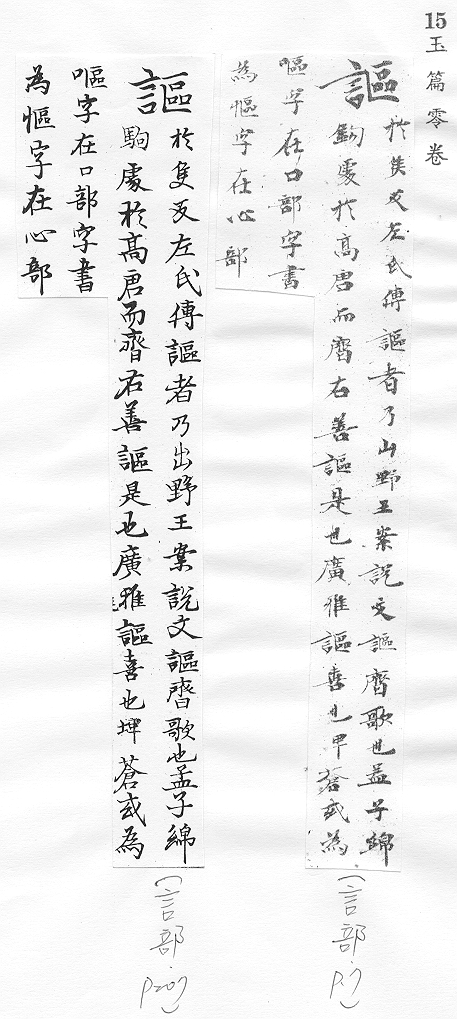 15玉篇零卷
謳
於侯反左氏傳謳者乃山野王案説文謳齊歌也孟子綿
駒處於高唐而齊右善謳是也廣雅謳喜也甲蒼或為
嘔字在口部字書
為慪字在心部
(言部. P.7)
謳
於隻反左氏傳謳者乃出野王案説文謳齊歌也孟子綿
駒處於高唐而齊右善謳是也廣雅謳喜也埤蒼或為
嘔字在口部字書
為慪字在心部
(言部. P.207)